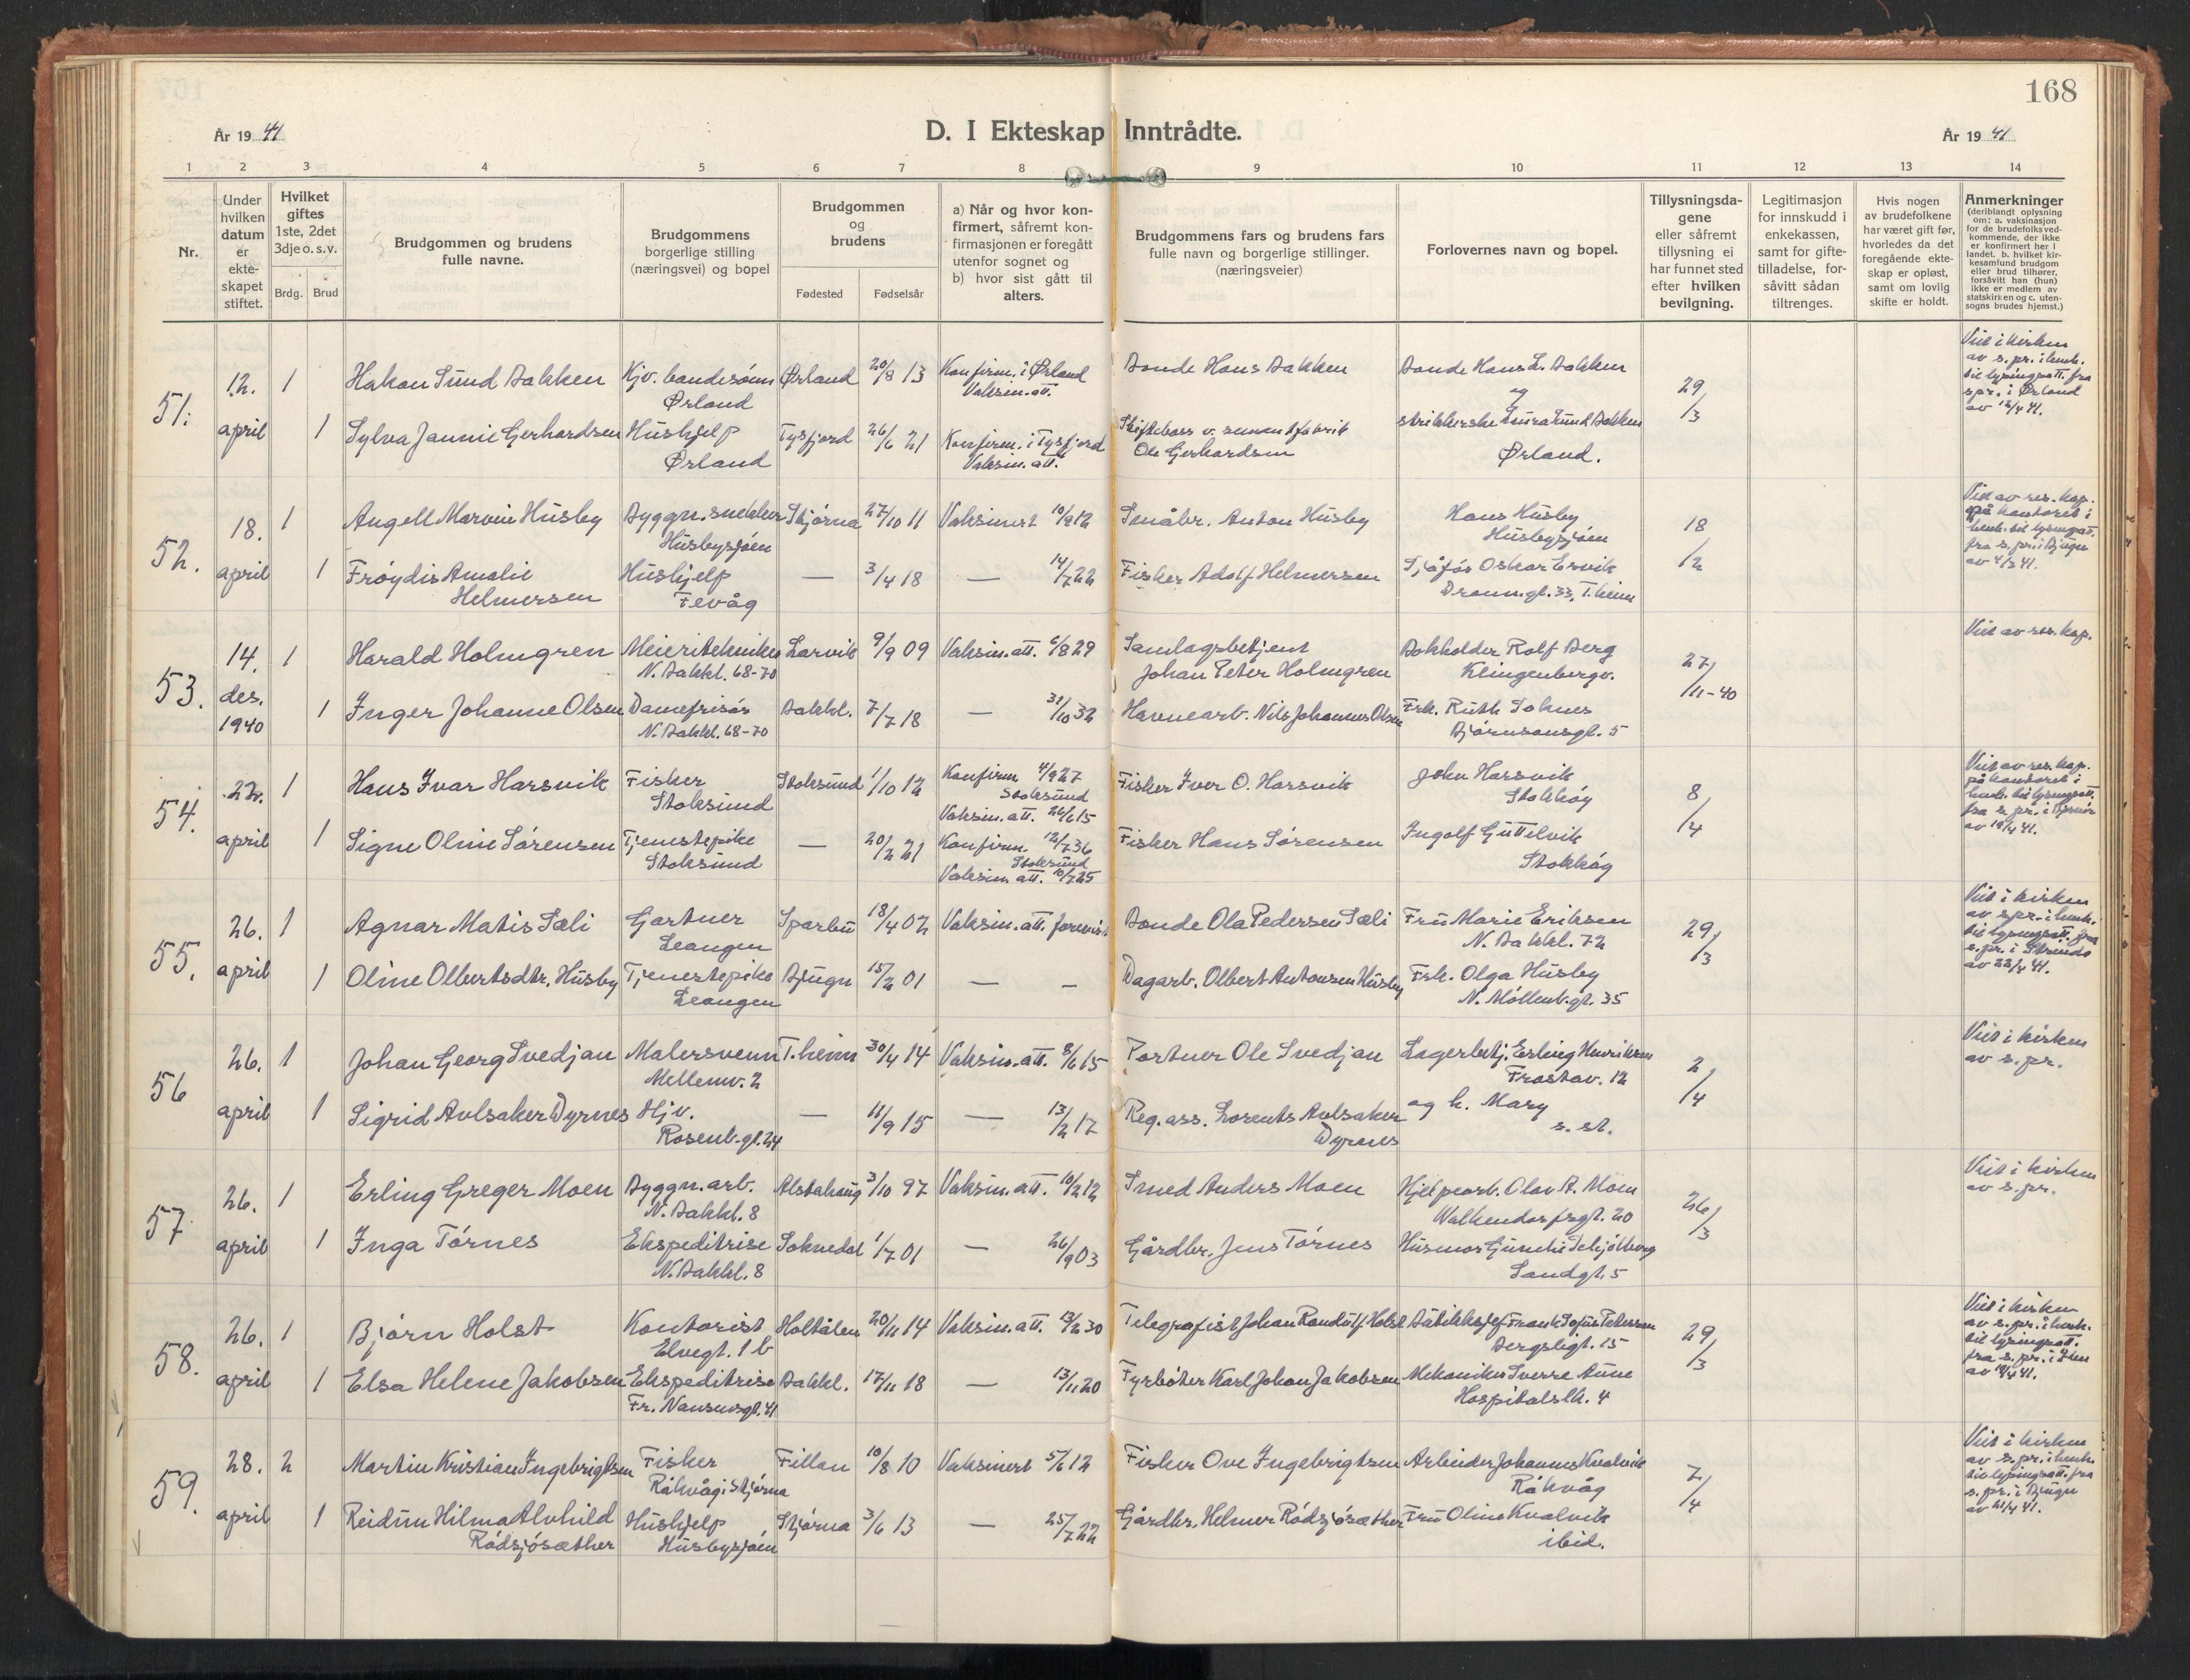 168
År 1941
D. I Ekteskap Inntrådte.
År 1941
1 2 3 4 5 6 7 8 9 10 11 12 13 14
Nr.
Under hvilken datum er ekteskapet stiftet.
Hvilket giftes 1ste, 2det 3dje o. s. v.
Brdg. Brud
Brudgommen og brudens fulle navne.
Brudgommens borgerlige stilling (næringsvei) og bopel
Brudgommen og brudens
Fødested Fødselsår
a) Når og hvor konfirmert, såfremt konfirmasjonen er foregått utenfor sognet og
b) hvor sist gått til alters.
Brudgommens fars og brudens fars fulle navn og borgerlige stillinger. (næringsveier)
Forlovernes navn og bopel.
Tillysningsdagene eller såfremt tillysning ei har funnet sted efter hvilken bevilgning.
Legitimasjon for innskudd i enkekassen, samt for giftetilladelse, forsåvitt sådan tiltrenges.
Hvis nogen av brudefolkene har været gift før, hvorledes da det foregående ekteskap er opløst, samt om lovlig skifte er holdt.
Anmerkninger (deriblandt oplysning om: a. vaksinasjon for de brudefolksvedkommende, der ikke er konfirmert her i landet. b. hvilket kirkesamfund brudgom eller brud tilhører, forsåvitt han (hun) ikke er medlem av statskirken og c. utensogns brudes hjemst.)
51. 12. april 1 Hakon Sund Bakken Hjv. bondesønn Ørland Ørland 20/8 13 Konfirm. i Ørland Vaksin. att. Bonde Hans Bakken Bonde Hans L. Bakken og 29/3 Viet i kirken av s. pr. i henh. til lysingsatt. fra spr. i Ørland av 12/4 41.
1 Sylva Jannie Gerhardsen Hushjelp Ørland Tysfjord 26/6 21 Konfirm. i Tysfjord Vaksin. att. Skiftebass v. sementfabrik Ole Gerhardsen strikkerske Laura Sund Bakken Ørland.
52. 18. april 1 Angell Marvin Husby Byggn. snekker Husbysjøen Stjørna 27/10 11 Vaksinert 10/9 12 Småbr. Anton Husby Hans Husby Husbysjøen 18/2 Viet av res. kap. på kontoret i henh. til lysingsatt. fra s. pr. i Bjugn av 4/3 41.
1 Frøydis Amalie Helmersen Hushjelp Fevåg — 3/4 18 — 14/7 22 Fisker Adolf Helmersen Sjåfør Oskar Ervik Dronn. gt. 33, T.heim
53. 14. des. 1940 1 Harald Holmgren Meieritekniker N. Bakkl. 68-70 Larvik 9/9 09 Vaksin. att. 6/8 29 Samlagsbetjent Johan Peter Holmgren Bokholder Rolf Berg Klingenbergv. 27/11-40 Viet av res. kap.
1 Inger Johanne Olsen Damefrisør N. Bakkl. 68-70 Bakkl. 7/7 18 — 31/10 32 Havnearb. Nils Johannes Olsen Frk. Ruth Soknes Bjørnsonsgt. 5
54. 22. april 1 Hans Ivar Harsvik Fisker Stoksund Stoksund 1/10 12 Konfirm. 4/9 27 Stoksund Vaksin. att. 26/6 15 Fisker Iver O. Harsvik John Harsvik Stokkøy 8/4 Viet av res. kap. på kontoret i henh. til lysingsatt. fra s. pr. i Bjørnør av 19/4 41.
1 Signe Oline Sørensen Tjenestepike Stoksund — 20/2 21 Konfirm. 12/7 36 Stoksund Vaksin. att. 10/7 25 Fisker Hans Sørensen Ingolf Guttelvik Stokkøy
55. 26. april 1 Agnar Matis Sæli Gartner Leangen Sparbu 18/4 02 Vaksin. att. forevist Bonde Ola Pedersen Sæli Fru Marie Eriksen N. Bakkl. 72 29/3 Viet i kirken av spr. i henh. til lysingsatt. fra s. pr. i Strinda av 22/4 41.
1 Oline Olbertsdtr. Husby Tjenestepike Leangen Bjugn 15/2 01 — — Dagarb. Olbert Antonsen Husby Frk. Olga Husby N. Møllenb.gt. 35
56 26. april 1 Johan Georg Svedjan Malersvenn Mellemv. 2 T.heim 30/4 14 Vaksin. att. 8/6 15 Portner Ole Svedjan Lagerbetj. Erling Henriksen Frostav. 12 2/4 Viet i kirken av s. pr.
1 Sigrid Avlsaker Dyrnes Hjv. Rosenb. gt. 24 — 11/9 15 — 13/2 17 Reg. ass. Lorents Avlsaker Dyrnes og h. Mary s. st.
57 26. april 1 Erling Greger Moen Byggn. arb. N. Bakkl. 8 Alstahaug 3/10 97 Vaksin. att. 10/2 12 Smed Anders Moen Hjelpearb. Olav A. Moen Walkendorfsgt. 20 26/3 Viet i kirken av s. pr.
1 Inga Tørnes Ekspeditrise N. Bakkl. 8 Soknedal 1/7 01 — 26/9 03 Gårdbr. Jens Tørnes Husmor Gunchi Schjølberg Sandgt. 5
58. 26. april 1 Bjørn Holst Kontorist Elvegt. 1 b Holtålen 20/11 14 Vaksin. att. 12/2 30 Telegrafist Johan Randulf Holst Butikksjef Frank Sofus Petersen Bergsligt. 15 29/3 Viet i kirken av s. pr. i henh. til lysingsatt. fra s. pr. i Ilen av 19/4 41.
1 Elsa Helene Jakobsen Ekspeditrise Fr. Nansensgt. 41 Bakkl. 17/11 18 — 13/11 20 Fyrbøter Karl Johan Jakobsen Mekaniker Sverre Aune Hospitalslk. 4
59. 28. april 2 Martin Kristian Ingebrigtsen Fisker Råkvåg i Stjørna Fillan 10/8 10 Vaksinert 5/6 12 Fisker Ove Ingebrigtsen Arbeider Johannes Kvalvik Råkvåg 7/4 Viet i kirken av s. pr. i henh. til lysingsatt. fra s. pr. i Bjugn av 21/4 41.
1 Reidun Hilma Alvhild Rødsjøsæther Hushjelp Husbysjøen Stjørna 3/6 13 — 25/7 22 Gårdbr. Helmer Rødsjøsæther Fru Oline Kvalvik ibid.